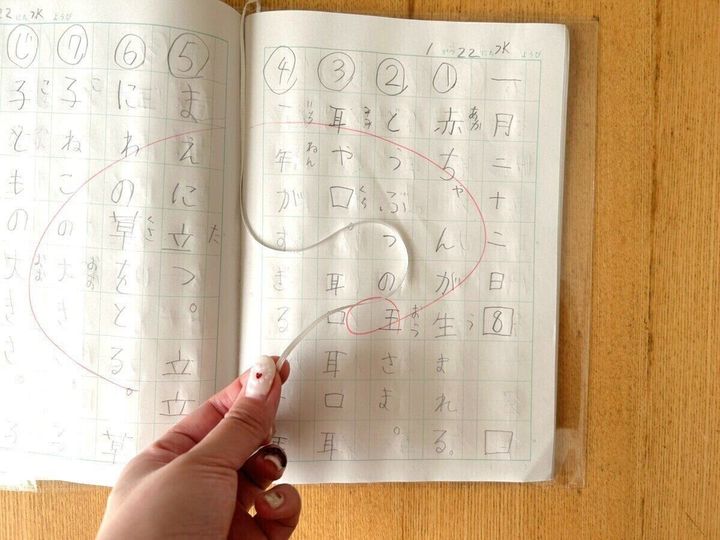 1がつ22にち水ようび
一月二十二日 8
① 赤ちゃんが生まれる。
② どうぶつの王さま。
③ 耳や口。耳口耳口耳
④ 一年がすぎる
⑤ まえに立つ。立立
⑥ にわの草をとる。草
⑦ 子ねこの大きさ。
子どもの大きさ。